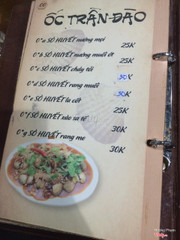 ỐC TRẦN-ĐÀO
SÒ HUYẾT nướng mọi 25K
SÒ HUYẾT nướng muối ớt 25K
SÒ HUYẾT cháy tỏi 30K
SÒ HUYẾT rang muối 30K
SÒ HUYẾT lá cốt 25K
SÒ HUYẾT xào sa tế 30K
SÒ HUYẾT rang me 30K